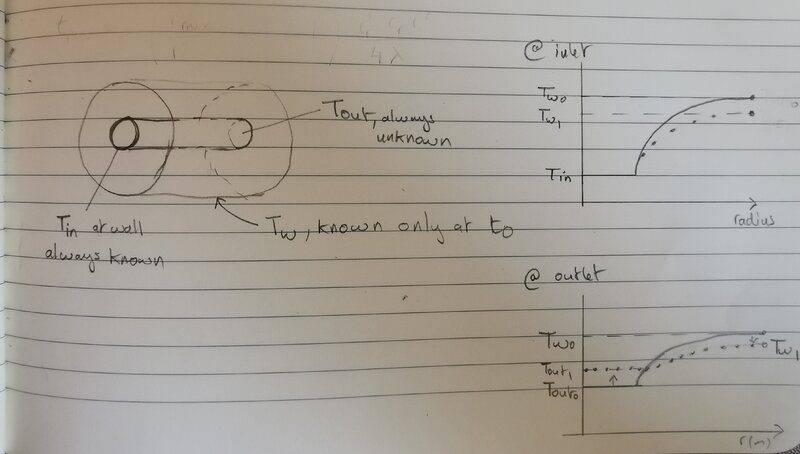 4λ
@ inlet
Tout, always
unknown
Tin at wall
always known
Tw, known only at t0
Tw0
Tw1
Tin
radius
@ outlet
Tw0
Tout1
Tout0
Tw1
r(m)